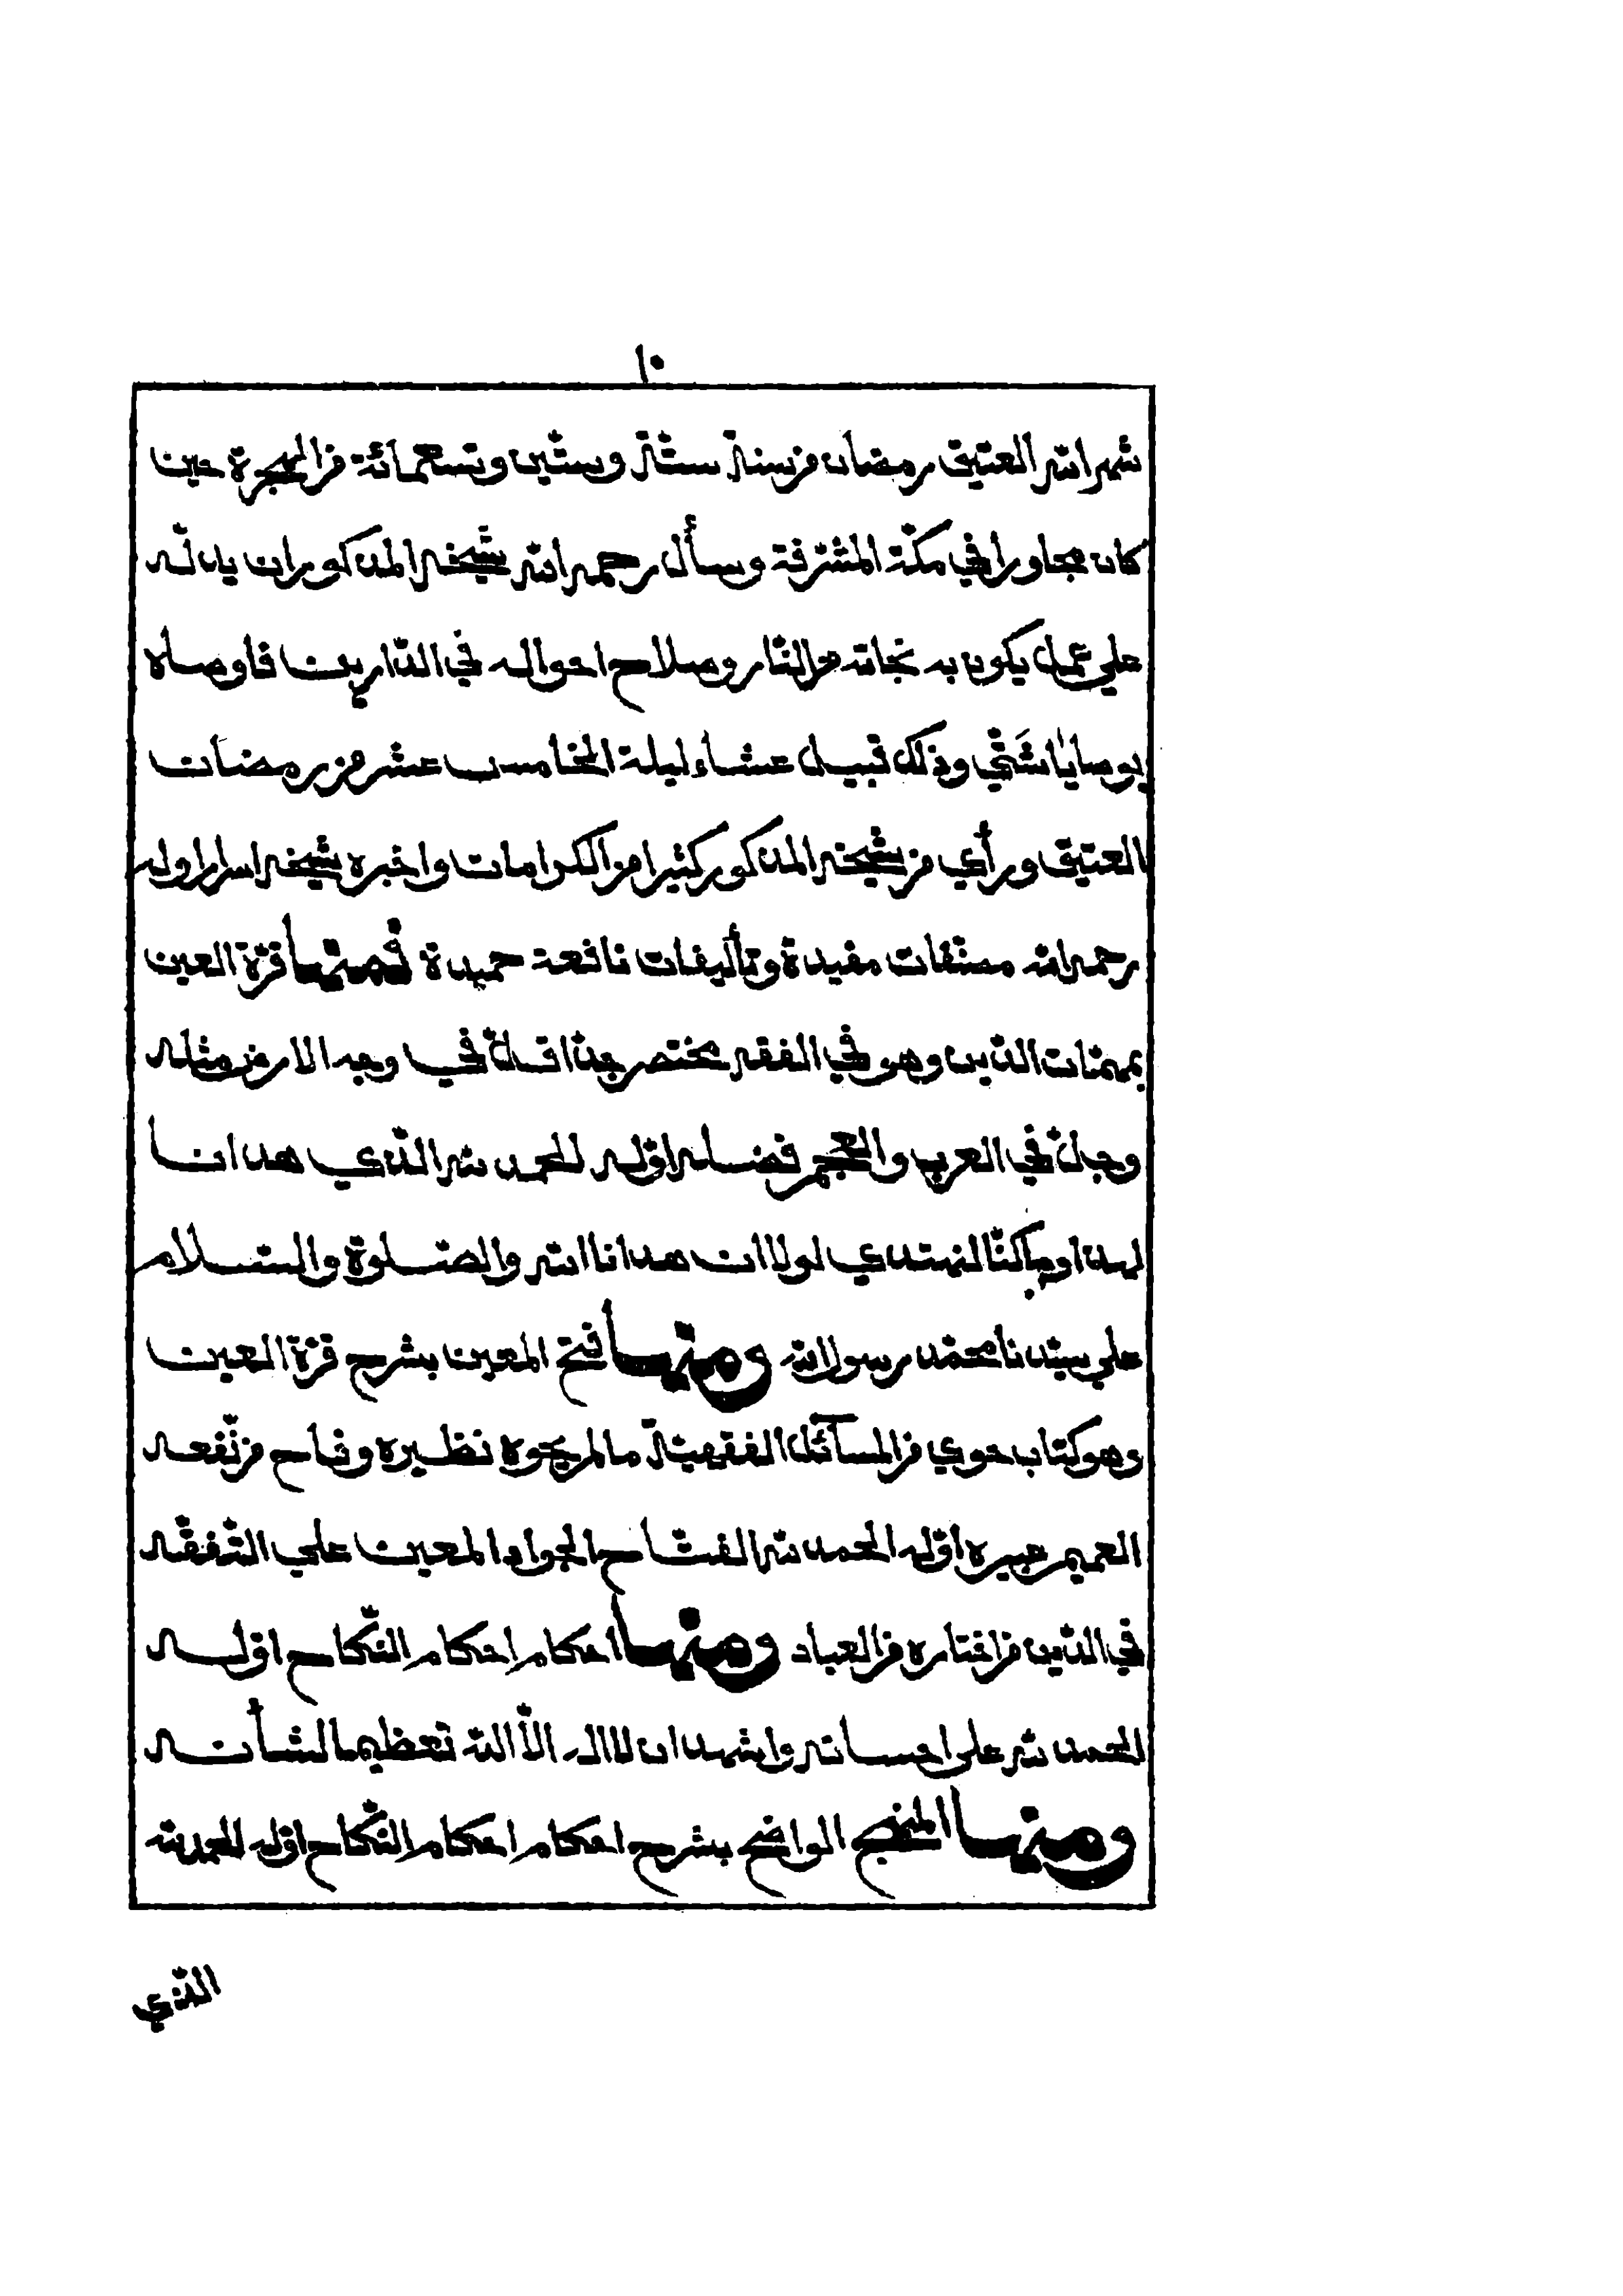 ١٠
شهر الله العتيق رمضان من سنة ستة وستين وتسعمائة من الهجرة حين
كان مجاورا في مكة المشرفة وسأل رحمه الله شيخه المذكور ان يدلّه
علي عمل يكون به نجاته من النّار وصلاح احواله في الدّارين فاوصاه
بوصايا شَتّي وذلك قبيل عشاء ليلة الخامس عشر من رمضان
العتيق ورأي من شيخه المذكور كثيرا من الكرامات واخبره شيخه اسرارا وله
رحمه الله مصنّفات مفيدة وتأليفات نافعة حميدة فمنها قرّة العين
بمهمّات الدّين وهو في الفقه مختصر جدّا قلّ في وجه الارض مثله
وجلّ في العرب والعجم فضله اوّله الحمد لله الّذي هدانا
لهذا وما كنّا لنهتدي لولا ان هدانا الله والصّلوة والسّلام
علي سيّدنا محمّد رسول الله ومنها فتح المعين بشرح قرّة العين
وهو كتاب حوي من المسآئل الفقهيّة ما لم يحوه نظيره وفاح من نّفعه
العميم عبيره اوّله الحمد لله الفتّاح الجواد المعين علي التّفقّه
في الدّين من اختاره من العباد ومنها احكام احكام النّكاح اوّله
الحمد لله علي احسانه واشهد ان لا اله الّا الله تعظيما لشأنه
ومنها المنهج الواضح بشرح احكام احكام النّكاح اوّله الحمد لله
الّذي